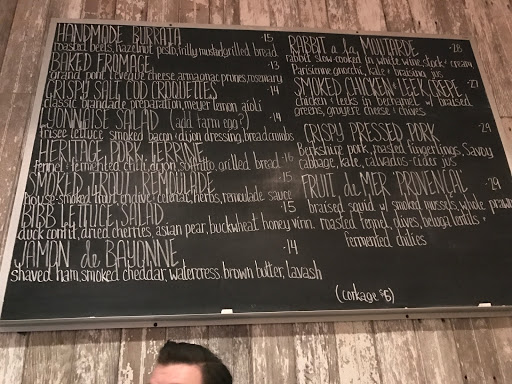 HANDMADE BURRATA -15
roasted beets, hazelnut pesto, frilly mustard, grilled bread
BAKED FROMAGE -13
grand pont l'eveque cheese, armagnac prunes, rosemary
CRISPY SALT COD CROQUETTES -14
classic brandade preparation, meyer lemon aioli
LYONNAISE SALAD (add farm egg?) -14
frisee lettuce, smoked bacon + dijon dressing, breadcrumbs
HERITAGE PORK TERRINE
fennel + fermented chili, dijon, soffrato, grilled bread -16
SMOKED TROUT REMOULADE -15
house-smoked trout, endive + celeriac, herbs, remoulade sauce
BIBB LETTUCE SALAD -15
duck confit, dried cherries, asian pear, buckwheat honey vinn.
JAMON de BAYONNE -14
shaved ham, smoked cheddar, watercress, brown butter, lavash
RABBIT a la MOUTARDE -28
rabbit slow cooked in white wine, stock + cream
Parisienne gnocchi, kale + braising jus
SMOKED CHICKEN + LEEK CREPE -27
chicken + leeks in bechamel w/ braised
greens, gruyere cheese + chives
CRISPY PRESSED PORK -29
Berkshire pork, roasted fingerlings, Savoy
cabbage, kale, calvados-cider jus
FRUIT de MER PROVENÇAL -29
braised squid w/ smoked mussels, whole prawn
roasted fennel, olives, beluga lentils +
fermented chilies
(corkage $15)